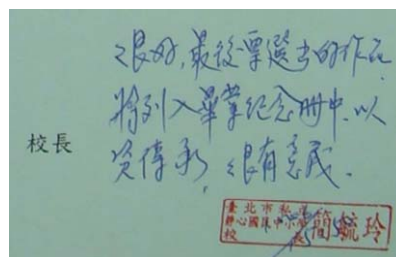 很好,最後票選出的作品
將列入畢業紀念冊中,以
校長
資傳承,很有意義.
臺北市私立
靜心國民中小學
校長
簡毓玲